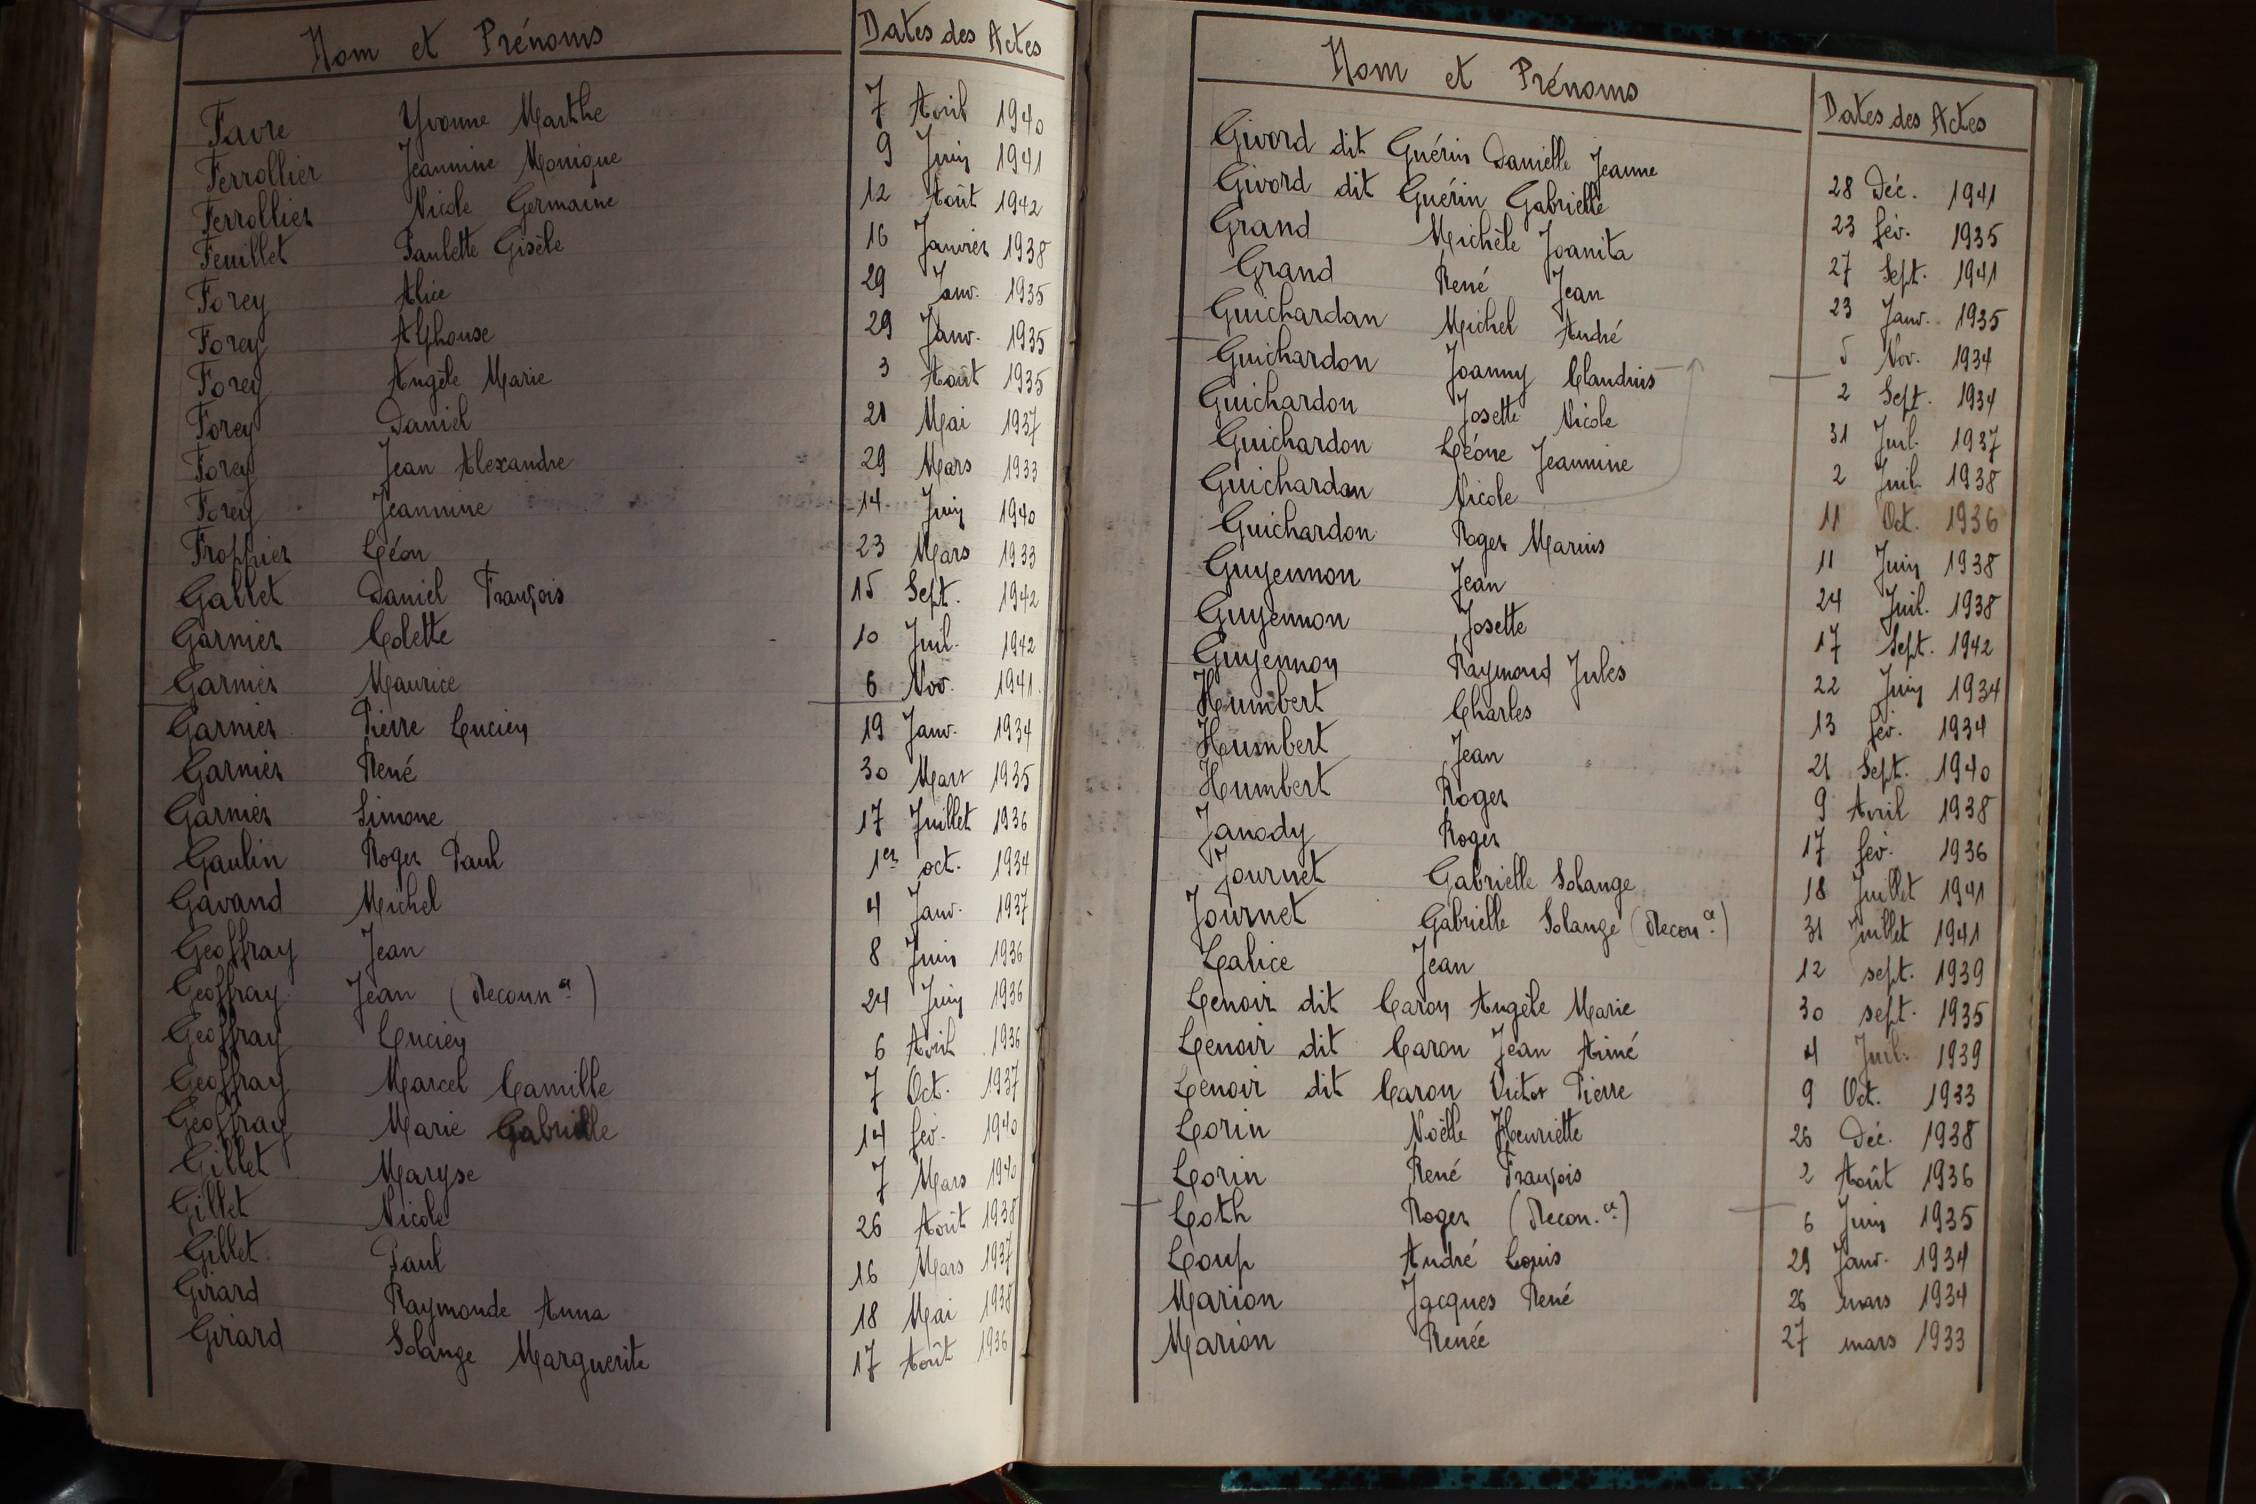 Nom et Prénoms Dates des Actes
Favre Yvonne Marthe 7 Avril 1940
Ferrollier Jeannine Monique 9 Juin 1941
Ferrollier Nicole Germaine 12 Août 1942
Feuillet Paulette Gisèle 16 Janvier 1938
Forey Alice 29 Janv. 1935
Forey Alphonse 29 Janv. 1935
Forey Angèle Marie 3 Août 1935
Forey Daniel 21 Mai 1937
Forey Jean Alexandre 29 Mars 1933
Forey Jeannine 14 Juin 1940
Froppier Léon 23 Mars 1933
Gallet Daniel François 15 Sept. 1942
Garnier Colette 10 Juil. 1942
Garnier Maurice 6 Nov. 1941
Garnier Pierre Lucien 19 Janv. 1934
Garnier René 30 Mars 1935
Garnier Simone 17 Juillet 1936
Gaulin Roger Paul 1er oct. 1934
Gavand Michel 4 Janv. 1937
Geoffray Jean 8 Juin 1936
Geoffray Jean (Reconn ce) 24 Juin 1936
Geoffray Lucien 6 Avril 1936
Geoffray Marcel Camille 7 Oct. 1937
Geoffray Marie Gabrielle 14 fév. 1940
Gillet Maryse 7 Mars 1940
Gillet Nicole 26 Août 1938
Gillet Paul 16 Mars 1937
Girard Raymonde Anna 18 Mai 1938
Girard Solange Marguerite 17 Août 1936
Nom et Prénoms Dates des Actes
Givord dit Guérin Danielle Jeanne 28 Déc. 1941
Givord dit Guérin Gabrielle 23 fév. 1935
Grand Michèle Joanita 27 Sept. 1941
Grand René Jean 23 Janv. 1935
Guichardan Michel André 5 Nov. 1934
Guichardon Joanny Claudius 2 Sept. 1934
Guichardon Josette Nicole 31 Juil. 1937
Guichardon Léone Jeannine 2 Juil. 1938
Guichardan Nicole 11 Oct. 1936
Guichardon Roger Marius 11 Juin 1938
Guyennon Jean 24 Juil. 1938
Guyennon Josette 17 Sept. 1942
Guyennon Raymond Jules 22 Juin 1934
Humbert Charles 13 fév. 1934
Humbert Jean 21 Sept. 1940
Humbert Roger 9 Avril 1938
Janody Roger 17 fév. 1936
Journet Gabrielle Solange 18 Juillet 1941
Journet Gabrielle Solange (Recon. ce) 31 Juillet 1941
Lalice Jean 12 sept. 1939
Lenoir dit Caron Angèle Marie 30 sept. 1935
Lenoir dit Caron Jean Aimé 4 Juil. 1939
Lenoir dit Caron Victor Pierre 9 Oct. 1933
Lorin Noëlle Henriette 26 Déc. 1938
Lorin René François 2 Août 1936
Loth Roger (Recon. ce) 6 Juin 1935
Loup André Louis 29 Janv. 1934
Marion Jacques René 26 mars 1934
Marion Renée 27 mars 1933